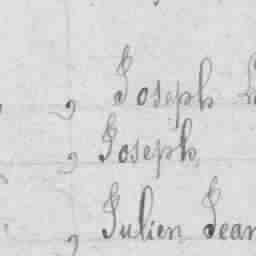 , Joseph
, Joseph,
, Julien Jean